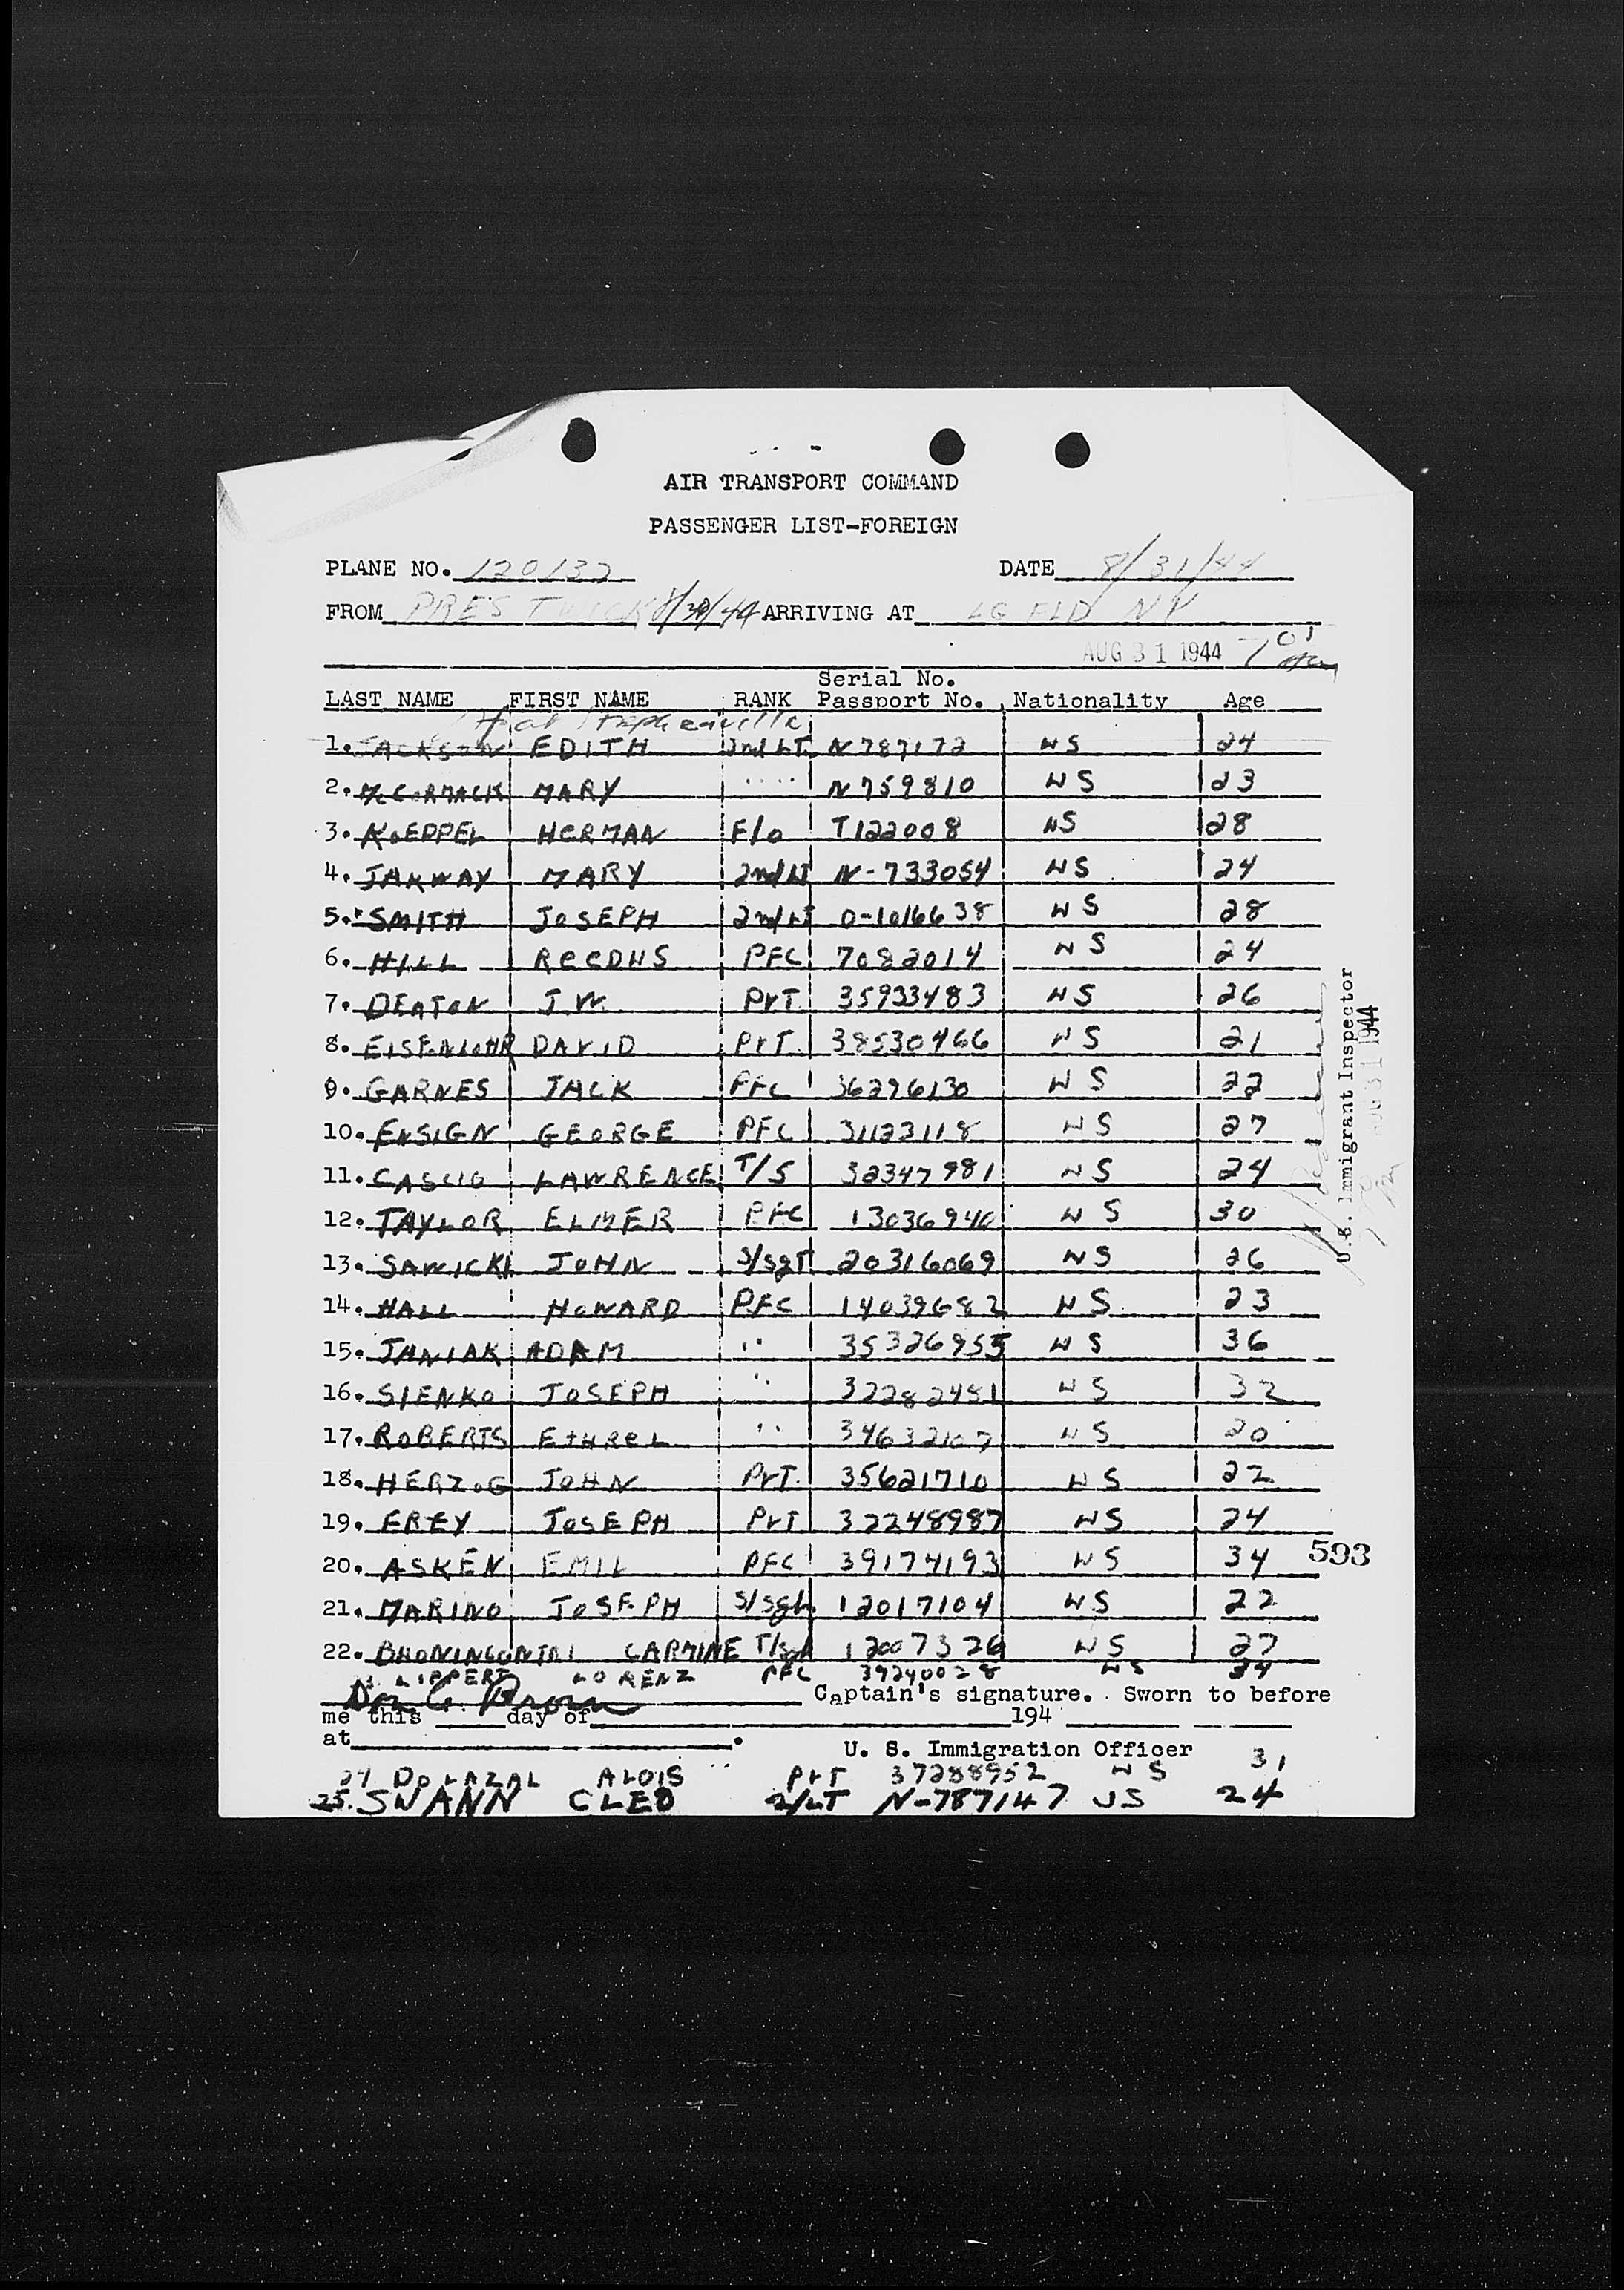 AIR TRANSPORT COMMAND
PASSENGER LIST-FOREIGN
PLANE NO. 120132 DATE 8/31/44
FROM PRESTWICK 8/30/44 ARRIVING AT LG FLD NY
AUG 31 1944 7 01
LAST NAME FIRST NAME RANK Serial No. Passport No. Nationality Age
Stephenville
1. JACKSON EDITH 2nd LT N787172 US 24
2. McCORMACK MARY " " N759810 US 23
3. KOEPPEL HERMAN F/O T122008 US 28
4. JAKWAY MARY 2nd LT N-733054 US 24
5. SMITH JOSEPH 2nd LT O-1016638 US 28
6. HILL REEDUS PFC 7082014 US 24
7. DEATON J.W. PvT 35933483 US 26
8. EISENLOHR DAVID PvT 38530466 US 21
9. GARNES JACK PFC 36296130 US 22
10. ENSIGN GEORGE PFC 31123118 US 27
11. CASCIO LAWRENCE T/5 32347981 US 24
12. TAYLOR ELMER PFC 13036940 US 30
13. SAWICKI JOHN S/SgT 20316069 US 26
14. HALL HOWARD PFC 14039682 US 23
15. JANIAK ADAM " 35326955 US 36
16. SIENKO JOSEPH " 32282481 US 32
17. ROBERTS ETHREL " 34632107 US 20
18. HERZOG JOHN PvT 35621710 US 22
19. FREY JOSEPH PvT 32248987 US 24
20. ASKEN EMIL PFC 39174193 US 34
21. MARINO JOSEPH S/Sgt 12017104 US 22
22. BUONINCONTRI CARMINE T/Sgt 12007326 US 27
LIPPERT LORENZ PFC 39240028 US 34
Don G. Brown Captain's signature. Sworn to before
me this day of 194
at . U. S. Immigration Officer
24 DOLAZAL ALOIS PvT 37288952 US 31
25. SWANN CLEO 2/LT N-787147 US 24
593
U.S. Immigrant Inspector
AUG 31 1944